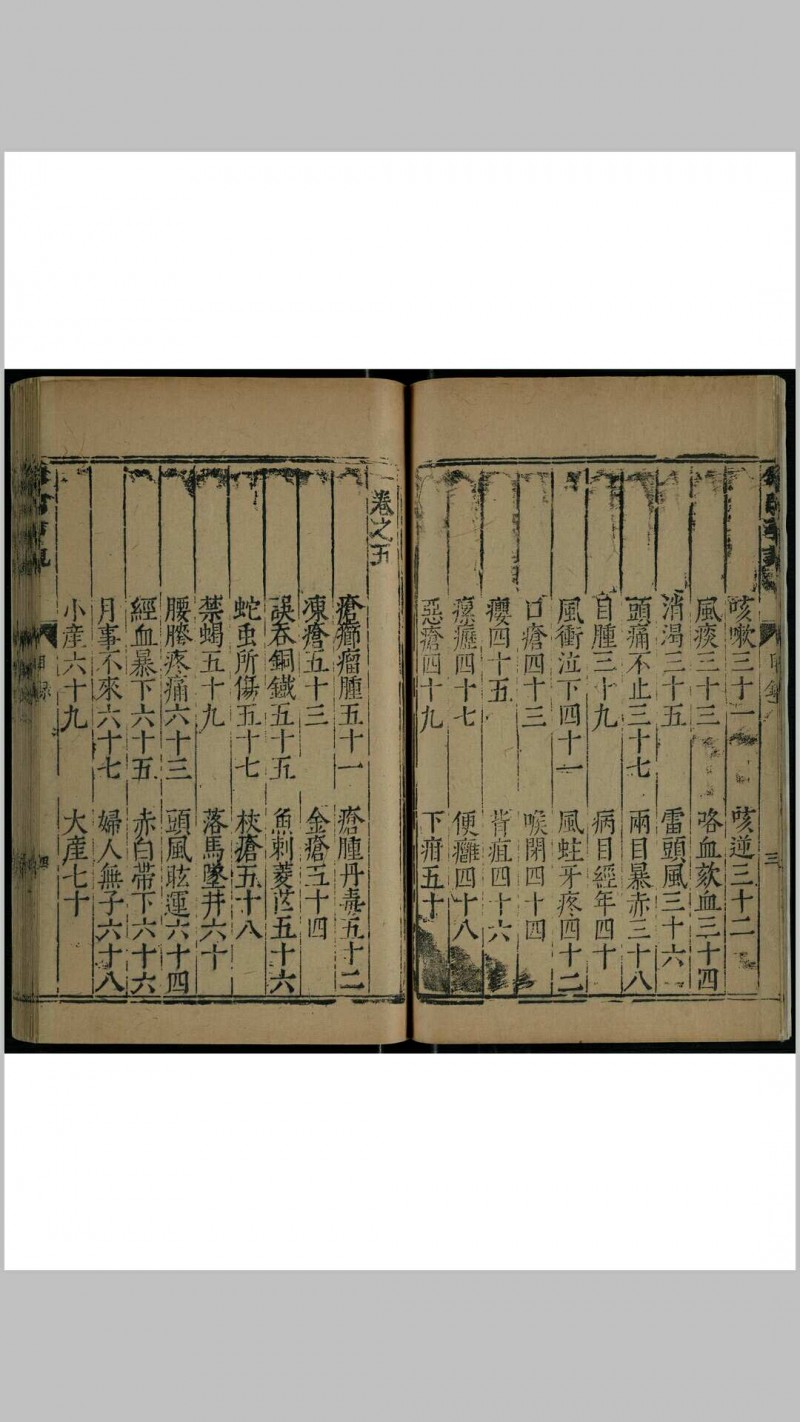 咳嗽三十一 咳逆三十二
風痰三十三 咯血欬血三十四
消渴三十五 雷頭風三十六
頭痛不止三十七 兩目暴赤三十八
目腫三十九 病目經年四十
風衝泣下四十一 風蛀牙疼四十二
口瘡四十三 喉閉四十四
癭四十五 背疽四十六
瘰癧四十七 便癰四十八
惡瘡四十九 下疳五十
卷之五
瘡癤瘤腫五十一 瘡腫丹毒五十二
凍瘡五十三 金瘡五十四
誤吞銅鐵五十五 魚刺菱芒五十六
蛇虫所傷五十七 杖瘡五十八
禁蝎五十九 落馬墜井六十
腰胯疼痛六十三 頭風眩運六十四
經血暴下六十五 赤白帶下六十六
月事不來六十七 婦人無子六十八
小產六十九 大產七十
目錄
四